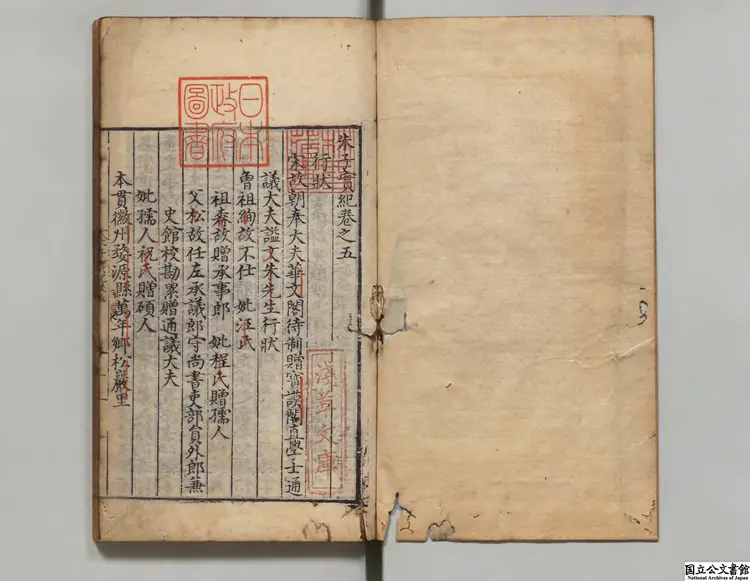 朱子實紀卷之五
行狀
宋故朝奉大夫華文閣待制贈寶謨閣直學士通
議大夫謚文朱先生行狀
曾祖絢故不仕 妣汪氏
祖森故贈承事郎 妣程氏贈孺人
父松故任左承議郎守尚書吏部員外郎兼
史館校勘累贈通議大夫
妣孺人祝氏贈碩人
本貫徽州婺源縣萬年鄉松巖里
日本
政府
圖書
淺草文庫
国立公文書館
National Archives of Japan